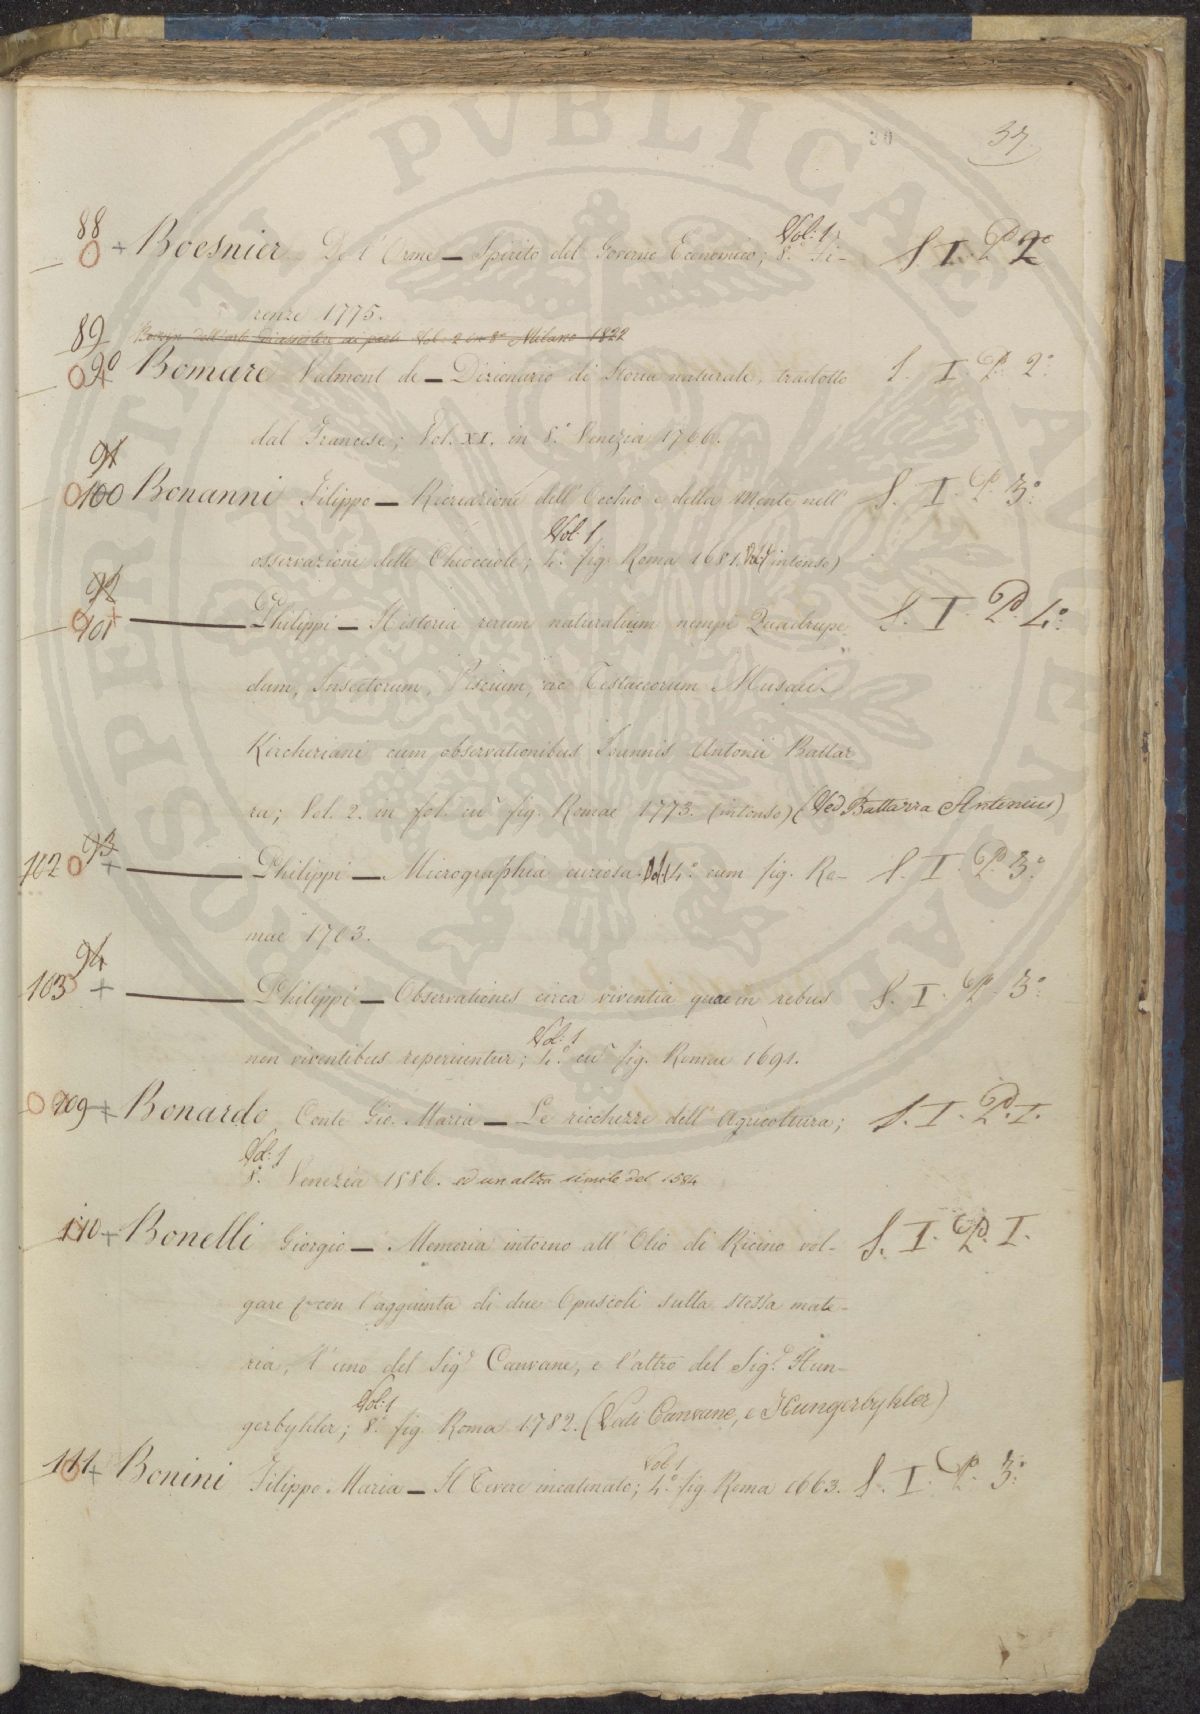 30 37
88 Boesnier De l'Orme — Spirito del Governo Economico; Vol: 1 8.° Fi- S. I. P. 2°
renze 1775.
89 Milano 1822
90 Bomare Valmont de — Dizionario di Storia naturale, tradotto S. I. P. 2°
dal Francese; Vol. XI. in 8.° Venezia 1766.
91
100 Bonanni Filippo — Ricreazione dell'Occhio e della Mente nell' S. I. P. 3°
osservazione delle Chiocciole; Vol: 1 4.° fig. Roma 1681. (intonso)
92
101 Philippi — Historia rerum naturalium nempe Quadrupe S. I. P. 4°
dum, Insectorum, Piscium, ac Testaceorum Musaei
Kircheriani cum observationibus Joannis Antonii Battar
ra; Vol. 2. in fol. cu fig. Romae 1773. (intonso) (Ved Battarra Antonius)
93
102 Philippi — Micrographia curiosa. Vol. 1 4.° cum fig. Ro- S. I. P. 3°
mae 1703.
94
103 Philippi — Observationes circa viventia quae in rebus S. I. P. 3°
non viventibus reperiuntur; Vol: 1 4.° cu fig. Romae 1691.
109 Bonardo Conte Gio. Maria — Le ricchezze dell'Agricoltura; S. I. P. I.
Vol: 1 8.° Venezia 1586. ed un altro simile del 1584
110 Bonelli Giorgio — Memoria intorno all'Olio di Ricino vol- S. I. P. I.
gare con l'aggiunta di due Opuscoli sulla stessa mate-
ria, l'uno del Sig.r Canvane, e l'altro del Sig.r Hun-
gerbyhler; Vol: 1 8.° fig. Roma 1782. (Vedi Canvane, e Hungerbyhler)
111 Bonini Filippo Maria — Il Tevere incatenato; Vol. 1 4.° fig. Roma 1663. S. I. P. 3°